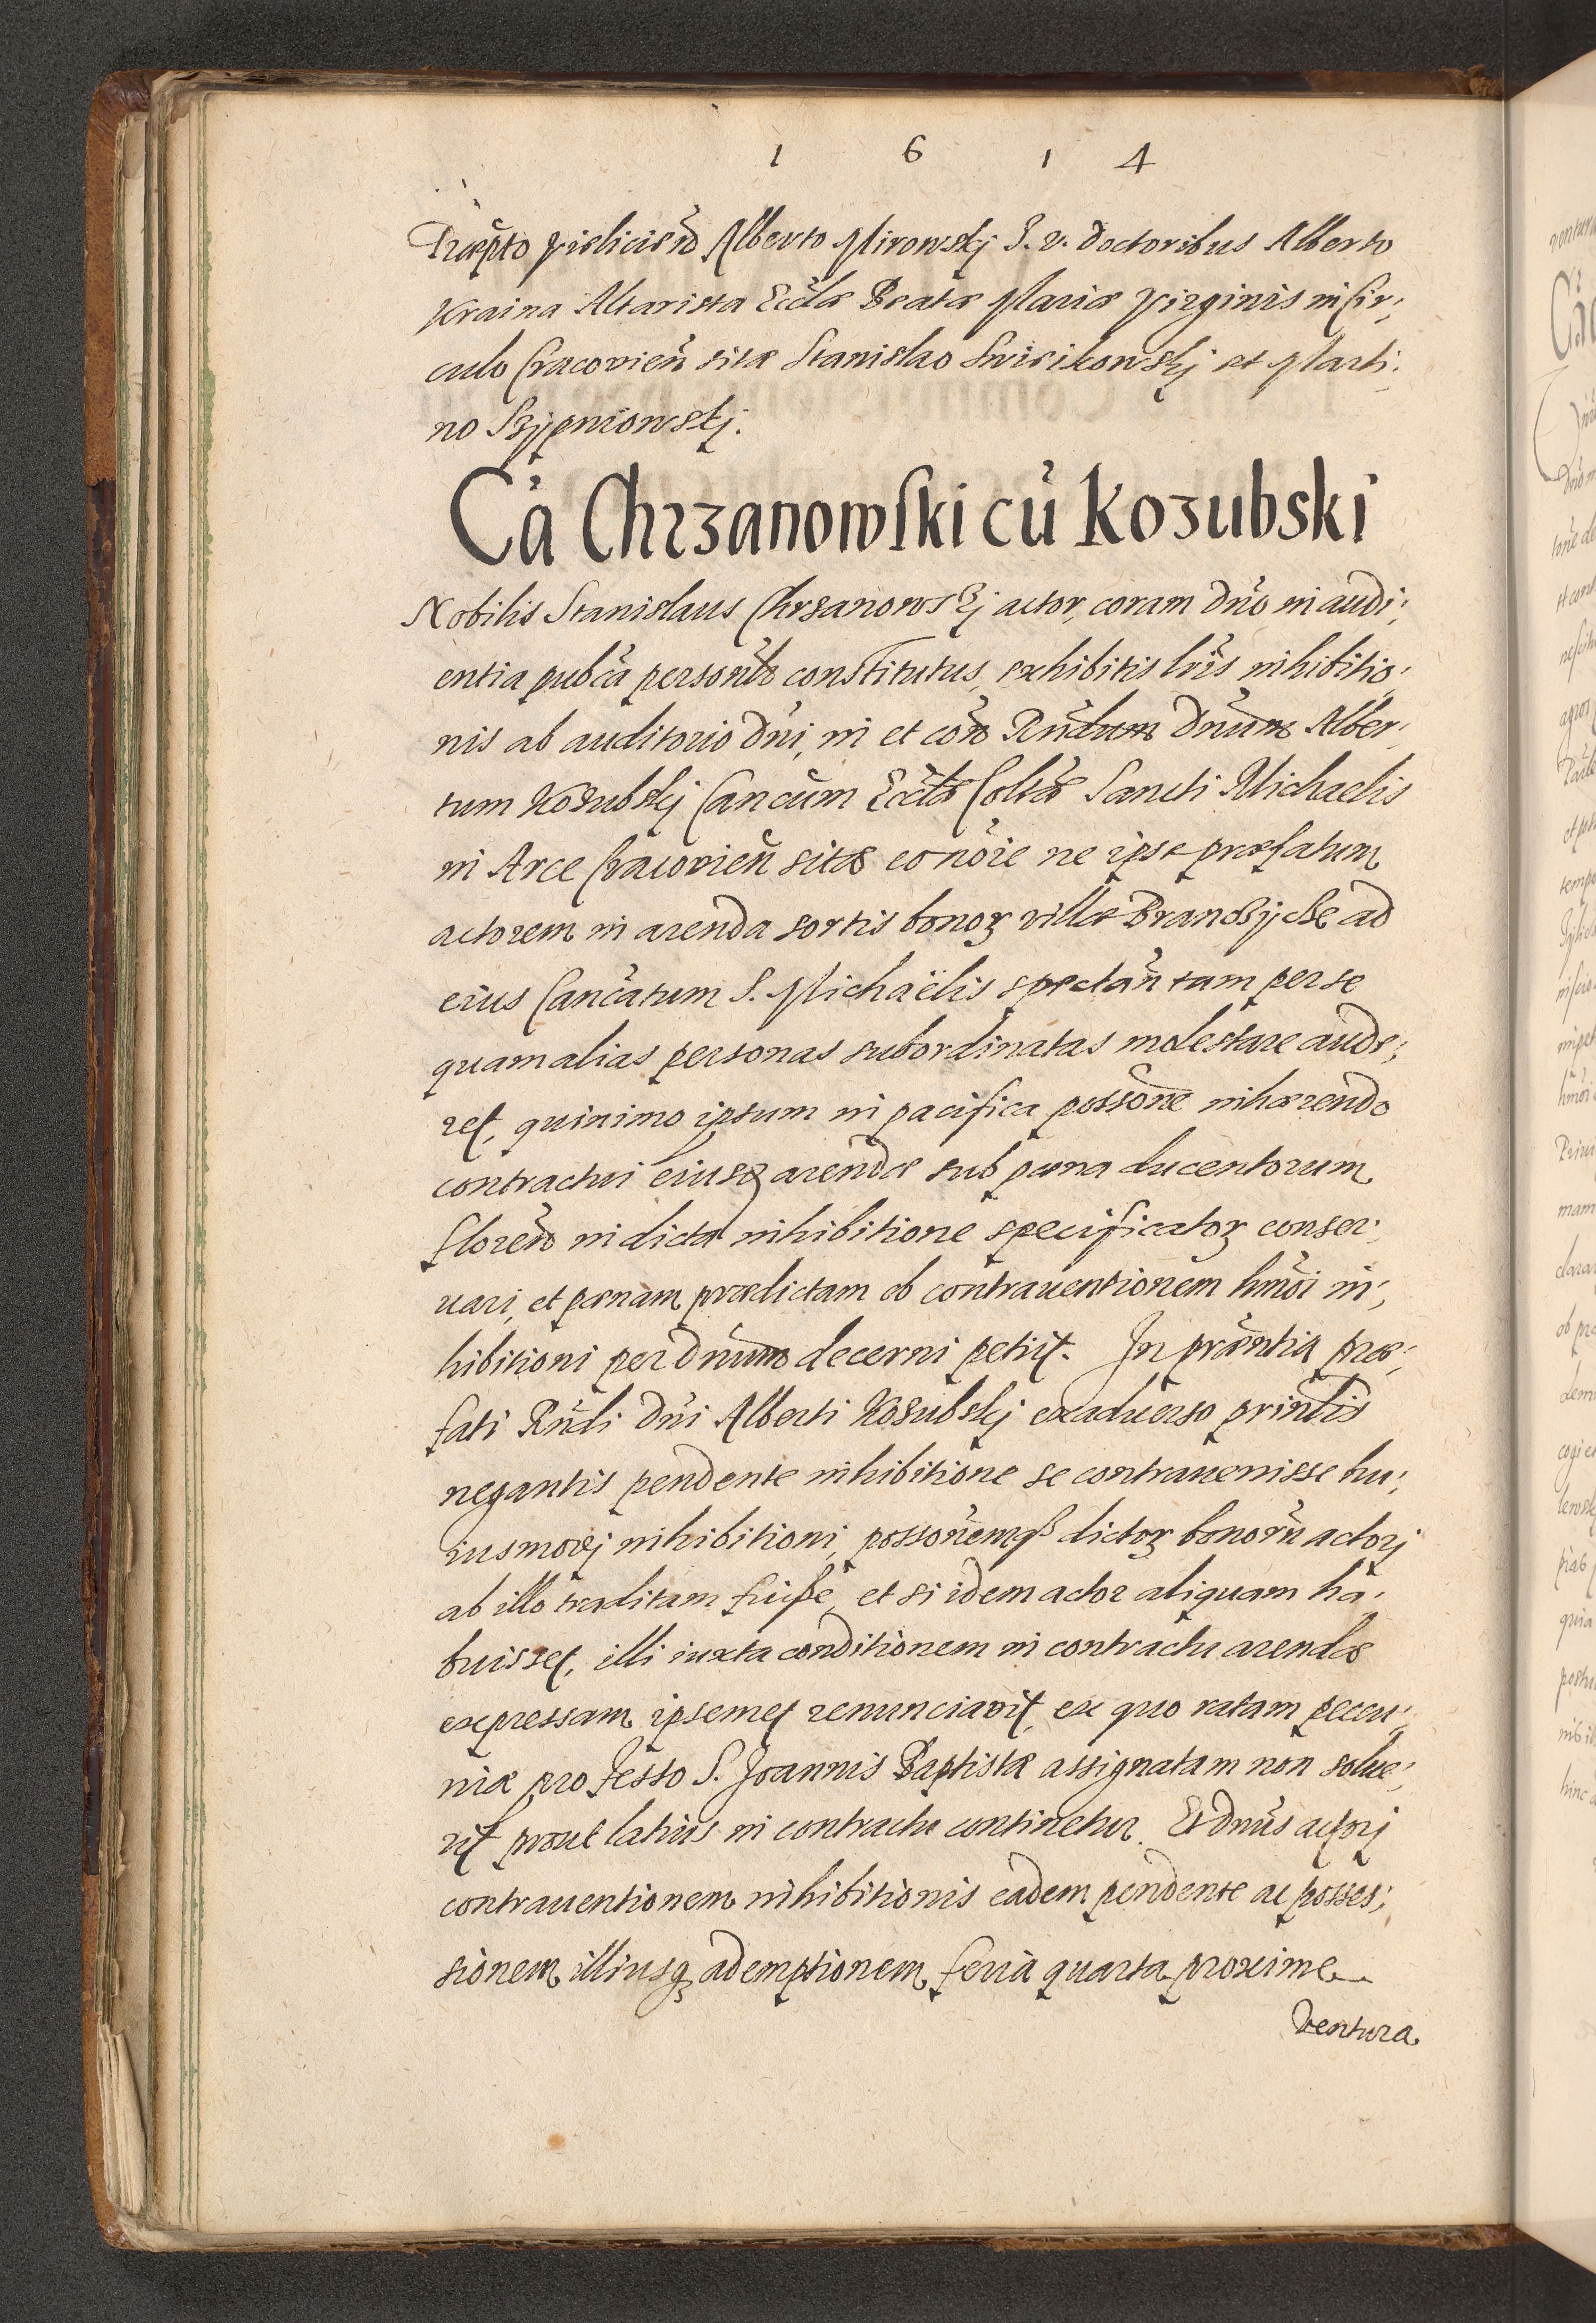 1 6 1 4
Præpto Visliciẽn Alberto Mirowskj I. v. doctoribus Alberto
Kraina Altarista Eccl̃æ Beatæ Mariæ Virginis in Cir;
culo Cracovieñ sitæ Stanislao Swirikowskj et Marti;
no Szÿpniowskj.
Cã Chrzanowski cũ Kozubski
Nobilis Stanislaus Chrzanowskj actor, coram dño in audi;
entia pubcã personlr̃ constitutus, exhibitis lrĩs inhibitio;
nis ab auditorio dñi, in et coñ Rñdum Dñum Alber;
tum Kozubskj Cancũm Eccl̃æ Collt̃æ Sancti Michaelis
in Arce Cracovieñ sitæ eo nõie ne ipse præfatum
actorem in arenda sortis bonoꝝ villæ Brandzÿcze ad
eius Cancãtum S. Michaëlis spectañ tam per se
quam alias personas subordinatas molestare aude;
ret, quinimo ipsum in pacifica possõne inhærendo
contractui eiusꝙ arendæ sub pœna ducentorum
floreñ in dicta inhibitione specificatoꝝ conser;
uari, et pœnam prædictam ob contrauentionem hmõi in;
hibitioni per Dñum decerni petiit. In præñtia præ;
fati Rñdi Dñi Alberti Kozubskj exaduerso prinlĩs
negantis pendente inhibitione se contrauenisse hu;
iusmodj inhibitioni, possõnemqꝫ dictoꝝ bonorũ actorj
ab illo traditam fuiße, et si idem actor aliquam ha;
buisset, illi iuxta conditionem in contractu arendæ
expressam ipsemet renunciavit, ex quo ratam pecu;
niæ pro festo S. Joannis Baptistæ assignatam non solue;
rit prout latius in contractu continetur. Et dñus actorj
contrauentionem inhibitionis eadem pendente ac posses;
sionem illiusqꝫ ademptionem feria quarta proxime
ventura